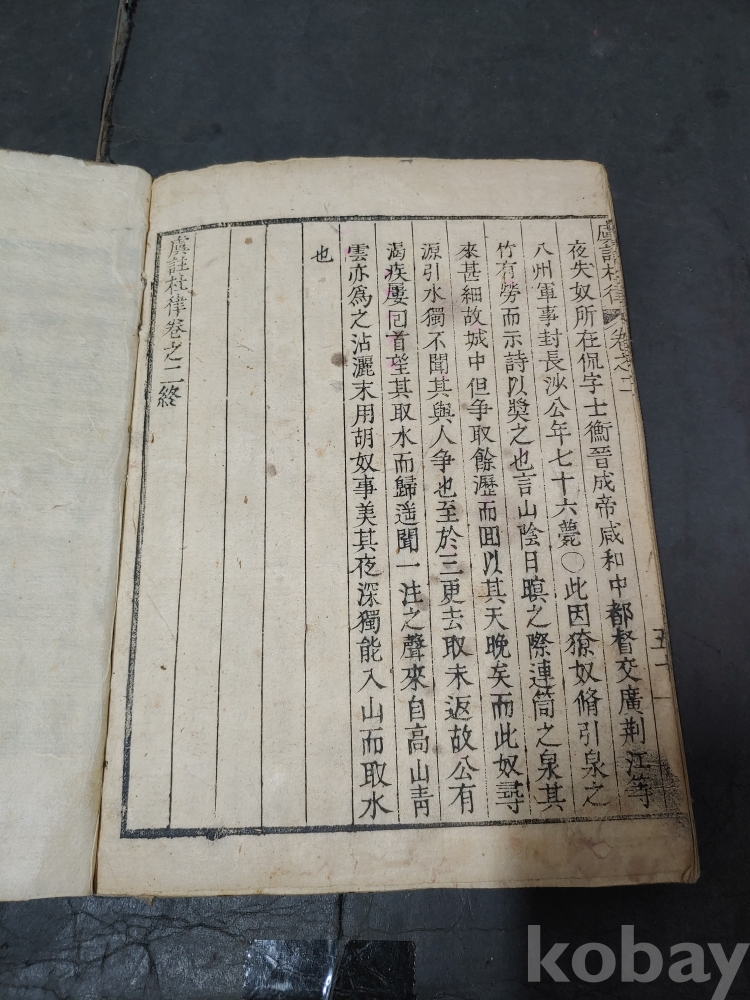 虞註杜律 卷之二
夜失奴所在侃字士衡晉成帝咸和中都督交廣荆江等
八州軍事封長沙公年七十六薨○此因獠奴脩引泉之
竹有勞而示詩以奬之也言山陰日暝之際連筒之泉其
來甚細故城中但争取餘瀝而回以其天晚矣而此奴尋
源引水獨不聞其與人争也至於三更去取未返故公有
渴疾屢回首望其取水而歸遥聞一注之聲來自高山靑
雲亦爲之沾灑末用胡奴事美其夜深獨能入山而取水
也
虞註杜律卷之二終
kobay